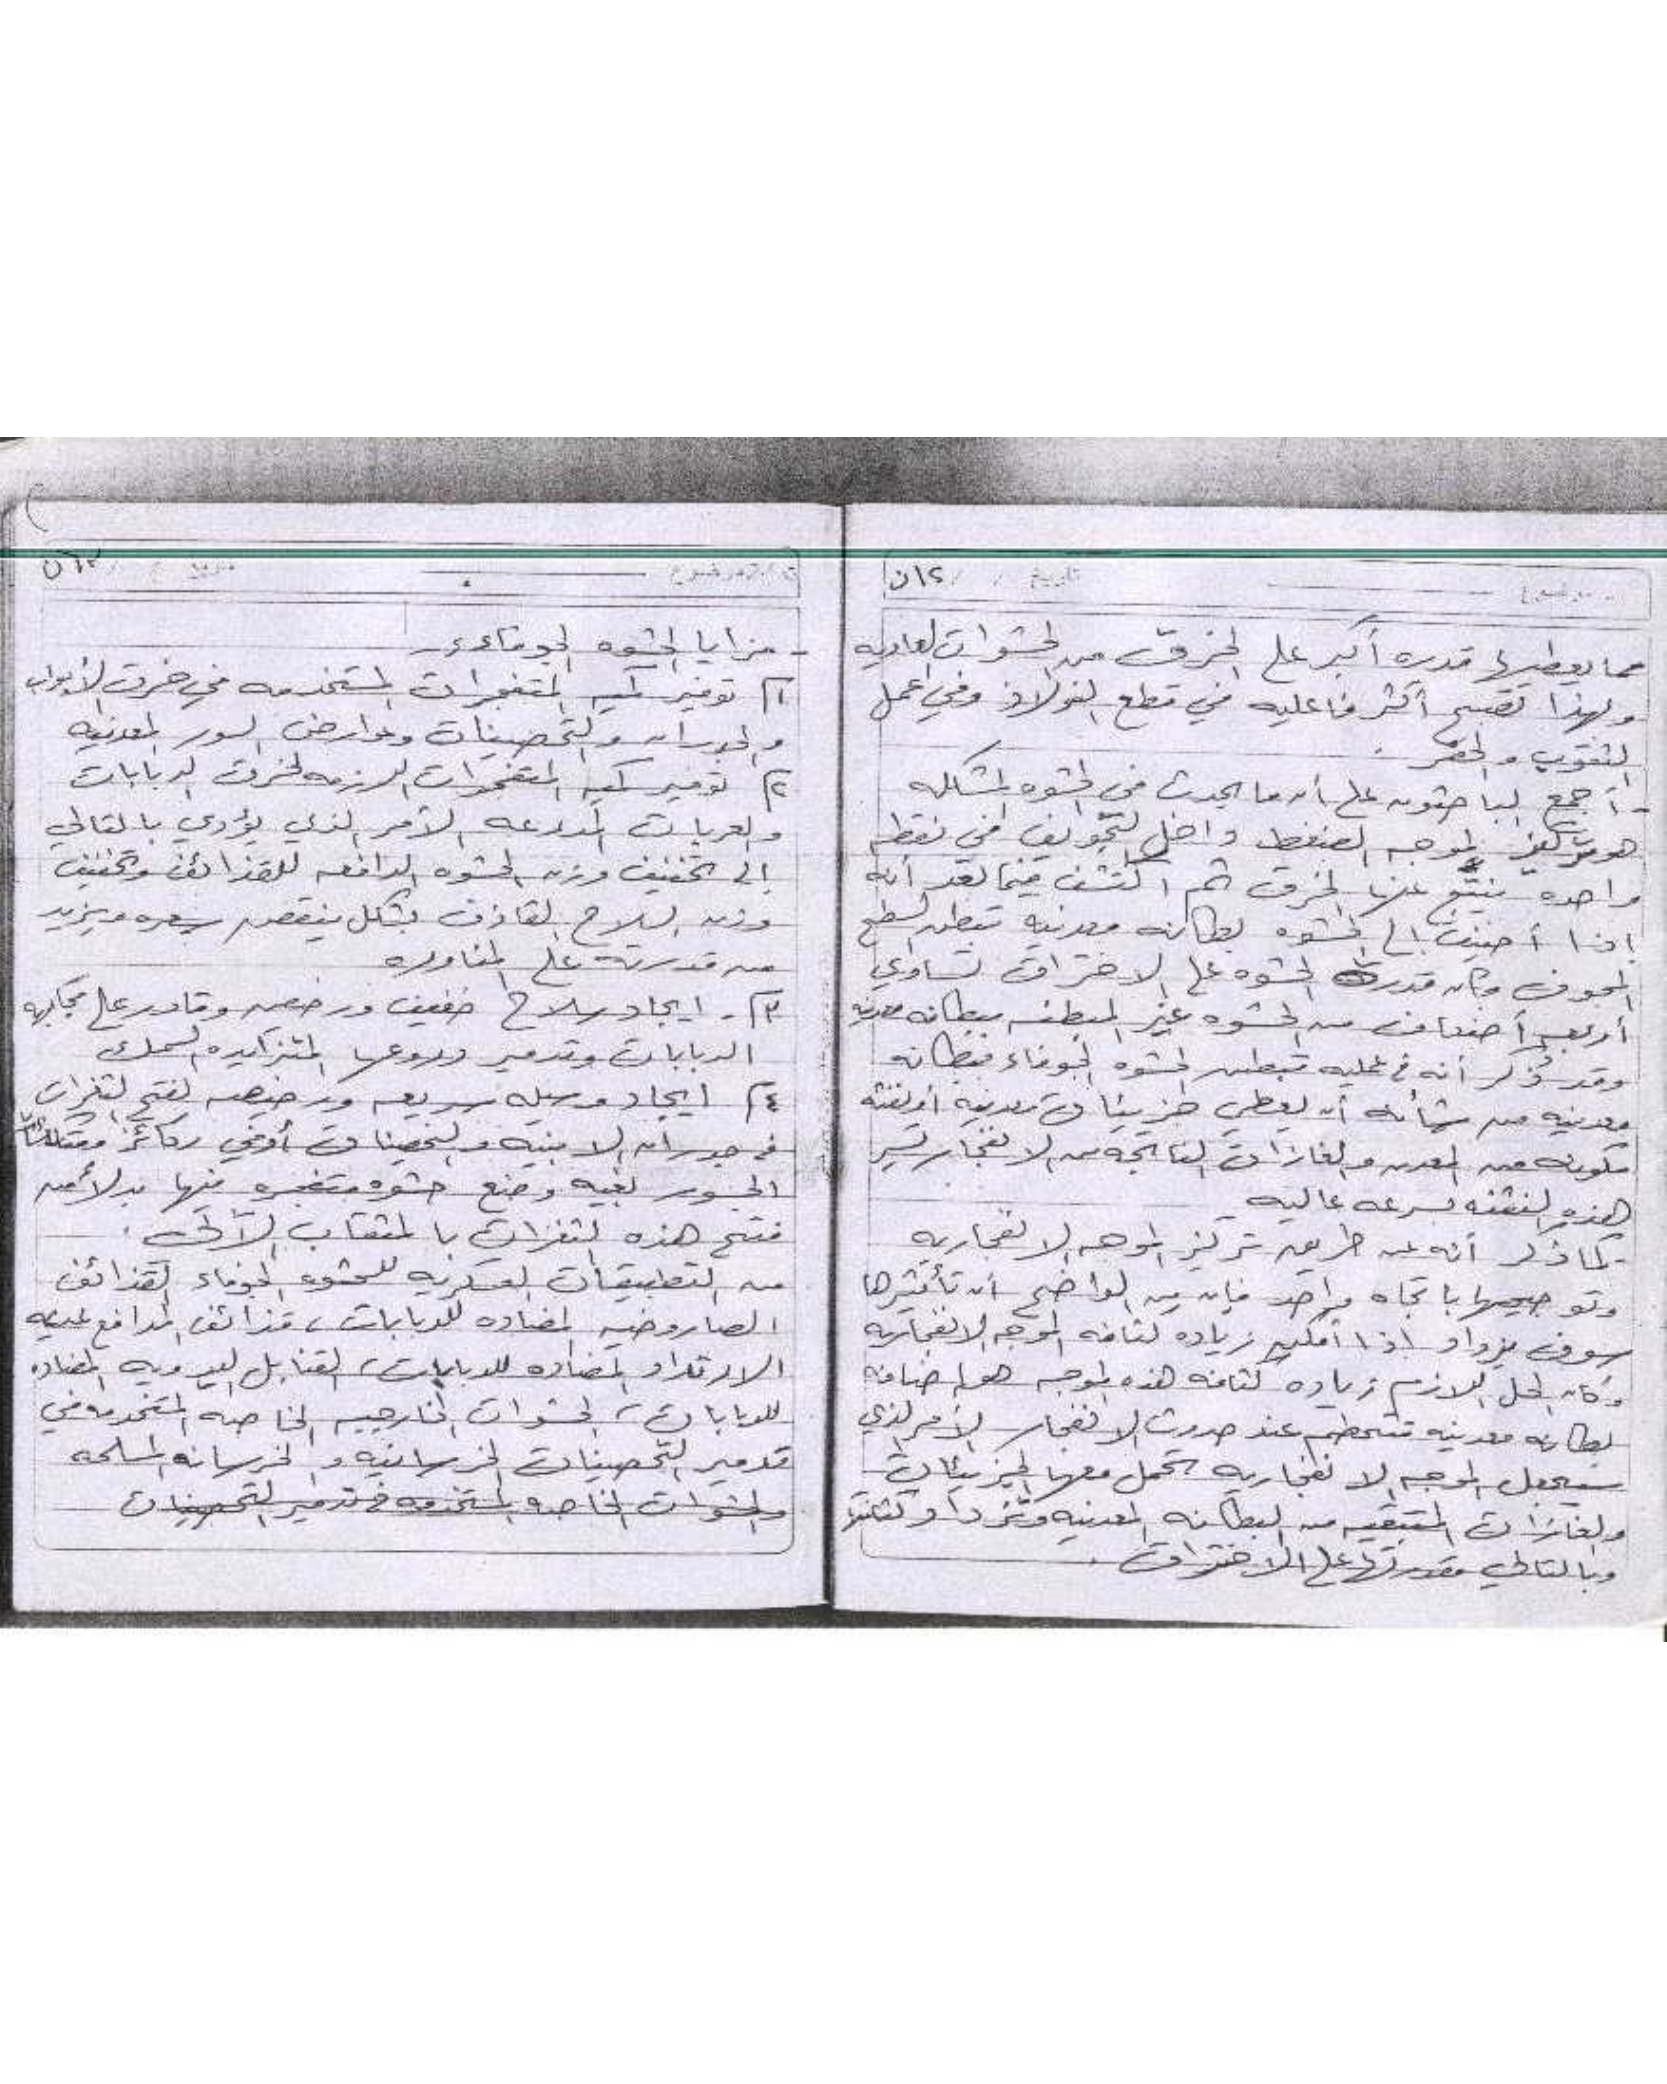 ن١٢ / / تاريخ
مما يعطيها قدره أكبر على الخرق من الحشوات العاديه
ولهذا تصبح أكثر فاعليه في قطع الفولاذ وفي عمل
الثقوب والحفر .
- أجمع الباحثون على أن ما يحدث في الحشوه المشكله
هو تركيز الموجه الضغط داخل التجويف في نقطه
واحده ينتج عنها الخرق ثم اكتشف فيما بعد أنه
إذا أضيفت إلى الحشوه بطانه معدنيه تبطن السطح
المجوف وكان قدرت الحشوه على الاختراق تساوي
أربعه أضعاف من الحشوه غير المبطنه ببطانه معدنيه
وقد ذكر أنه في عمليه تبطين الحشوه الجوفاء ببطانه
معدنيه من شأنه أن يعطي جزيئات معدنيه أو نفثه
مكونه من المعدن والغازات الناتجه من الانفجار تسير
هذه النفثه بسرعه عاليه
- كما ذكر أنه عن طريق تركيز الموجه الانفجاريه
وتوجيهها باتجاه واحد فإن من الواضح أن تأثيرها
سوف يزداد إذا أمكن زياده كثافه الموجه الانفجاريه
وكان الحل اللازم زياده كثافه هذه الموجه هو إضافه
بطانه معدنيه تتحطم عند حدوث الانفجار الأمر الذي
سيجعل الموجه الانفجاريه تحمل معها الجزيئات
والغازات المتبقيه من البطانه المعدنيه وتزداد كثافتها
وبالتالي مقدرتها على الاختراق .
ن١٣
- مزايا الحشوه الجوفاء :-
١) توفير كميه المتفجرات المستخدمه في خرق الأبواب
والجدران والتحصينات وعوارض السور المعدنيه
٢) توفير كميه المتفجرات اللازمه لخرق الدبابات
والعربات المدرعه الأمر الذي يؤدي بالتالي
إلى تخفيف وزن الحشوه الدافعه للقذائف وتخفيف
وزن السلاح القاذف بشكل ينقص سعره ويزيد
من قدرته على المناوره
٣) - ايجاد سلاح خفيف ورخيص وقادر على مجابهه
الدبابات وتدمير دروعها المتزايده السمك
٤) ايجاد وسيله سريعه ورخيصه لفتح الثغرات
في جدران الابنيه والتحصينات أو في ركائز
الجسور بغيه وضع حشوه متفجره فيها بدلا من
فتح هذه الثغرات بالمثقاب الآلي .
من التطبيقات العسكريه للحشوه الجوفاء القذائف
الصاروخيه المضاده للدبابات ، قذائف المدافع عديمه
الارتداد المضاده للدبابات ، القنابل اليدويه المضاده
للدبابات ، الحشوات الخارجيه الخاصه المستخدمه في
تدمير التحصينات الخرسانيه والخرسانه المسلحه
والحشوات الخاصه المستخدمه في تدمير التحصينات